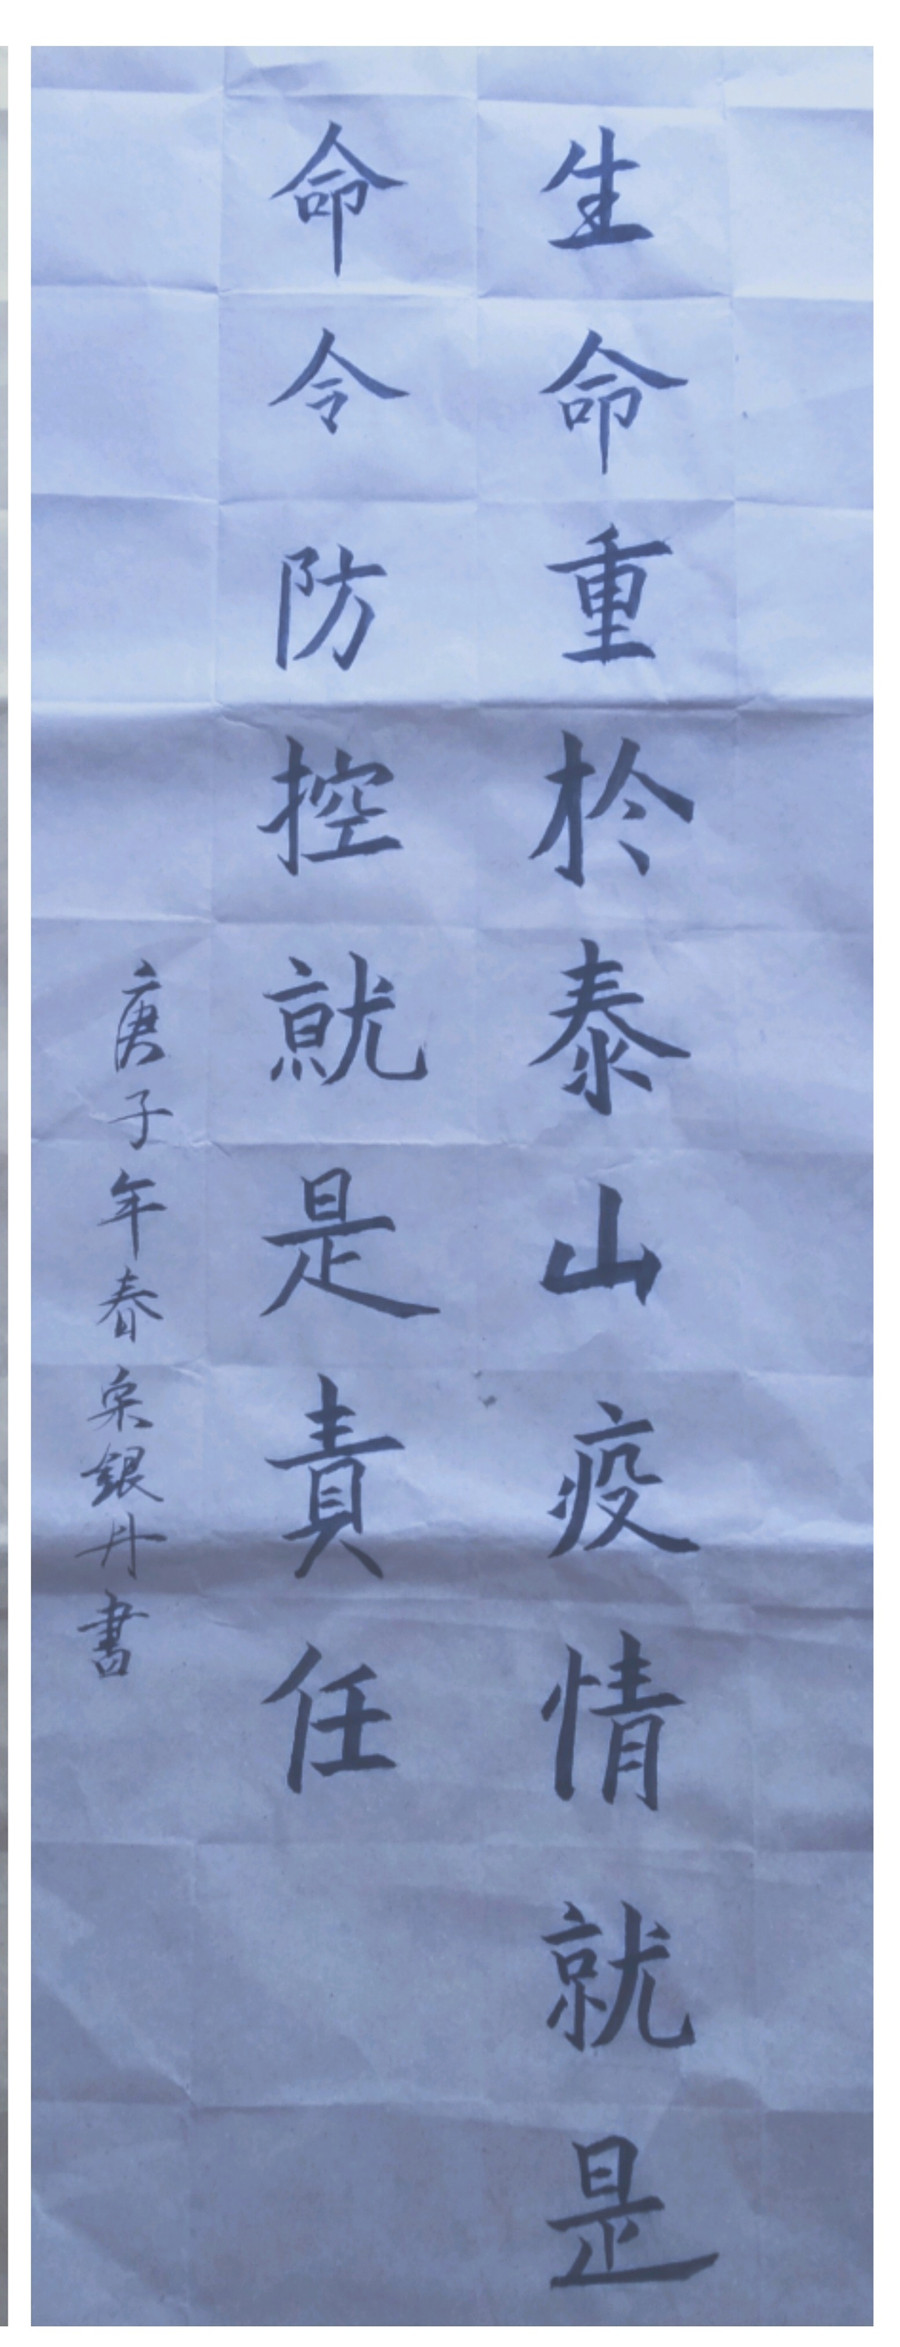 生命重於泰山疫情就是
命令防控就是責任
庚子年春宋銀丹書